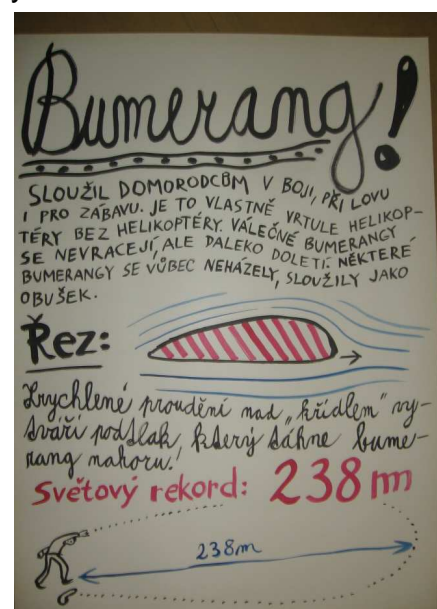 Bumerang!
SLOUŽIL DOMORODCŮM V BOJI, PŘI LOVU
I PRO ZÁBAVU. JE TO VLASTNĚ VRTULE HELIKOP-
TÉRY BEZ HELIKOPTÉRY. VÁLEČNÉ BUMERANGY
SE NEVRACEJÍ, ALE DALEKO DOLETÍ. NĚKTERÉ
BUMERANGY SE VŮBEC NEHÁZELY, SLOUŽILY JAKO
OBUŠEK.
Řez:
Zrychlené proudění nad „křídlem" vy-
tváří podtlak, který táhne bume-
rang nahoru!
Světový rekord: 238 m
238m